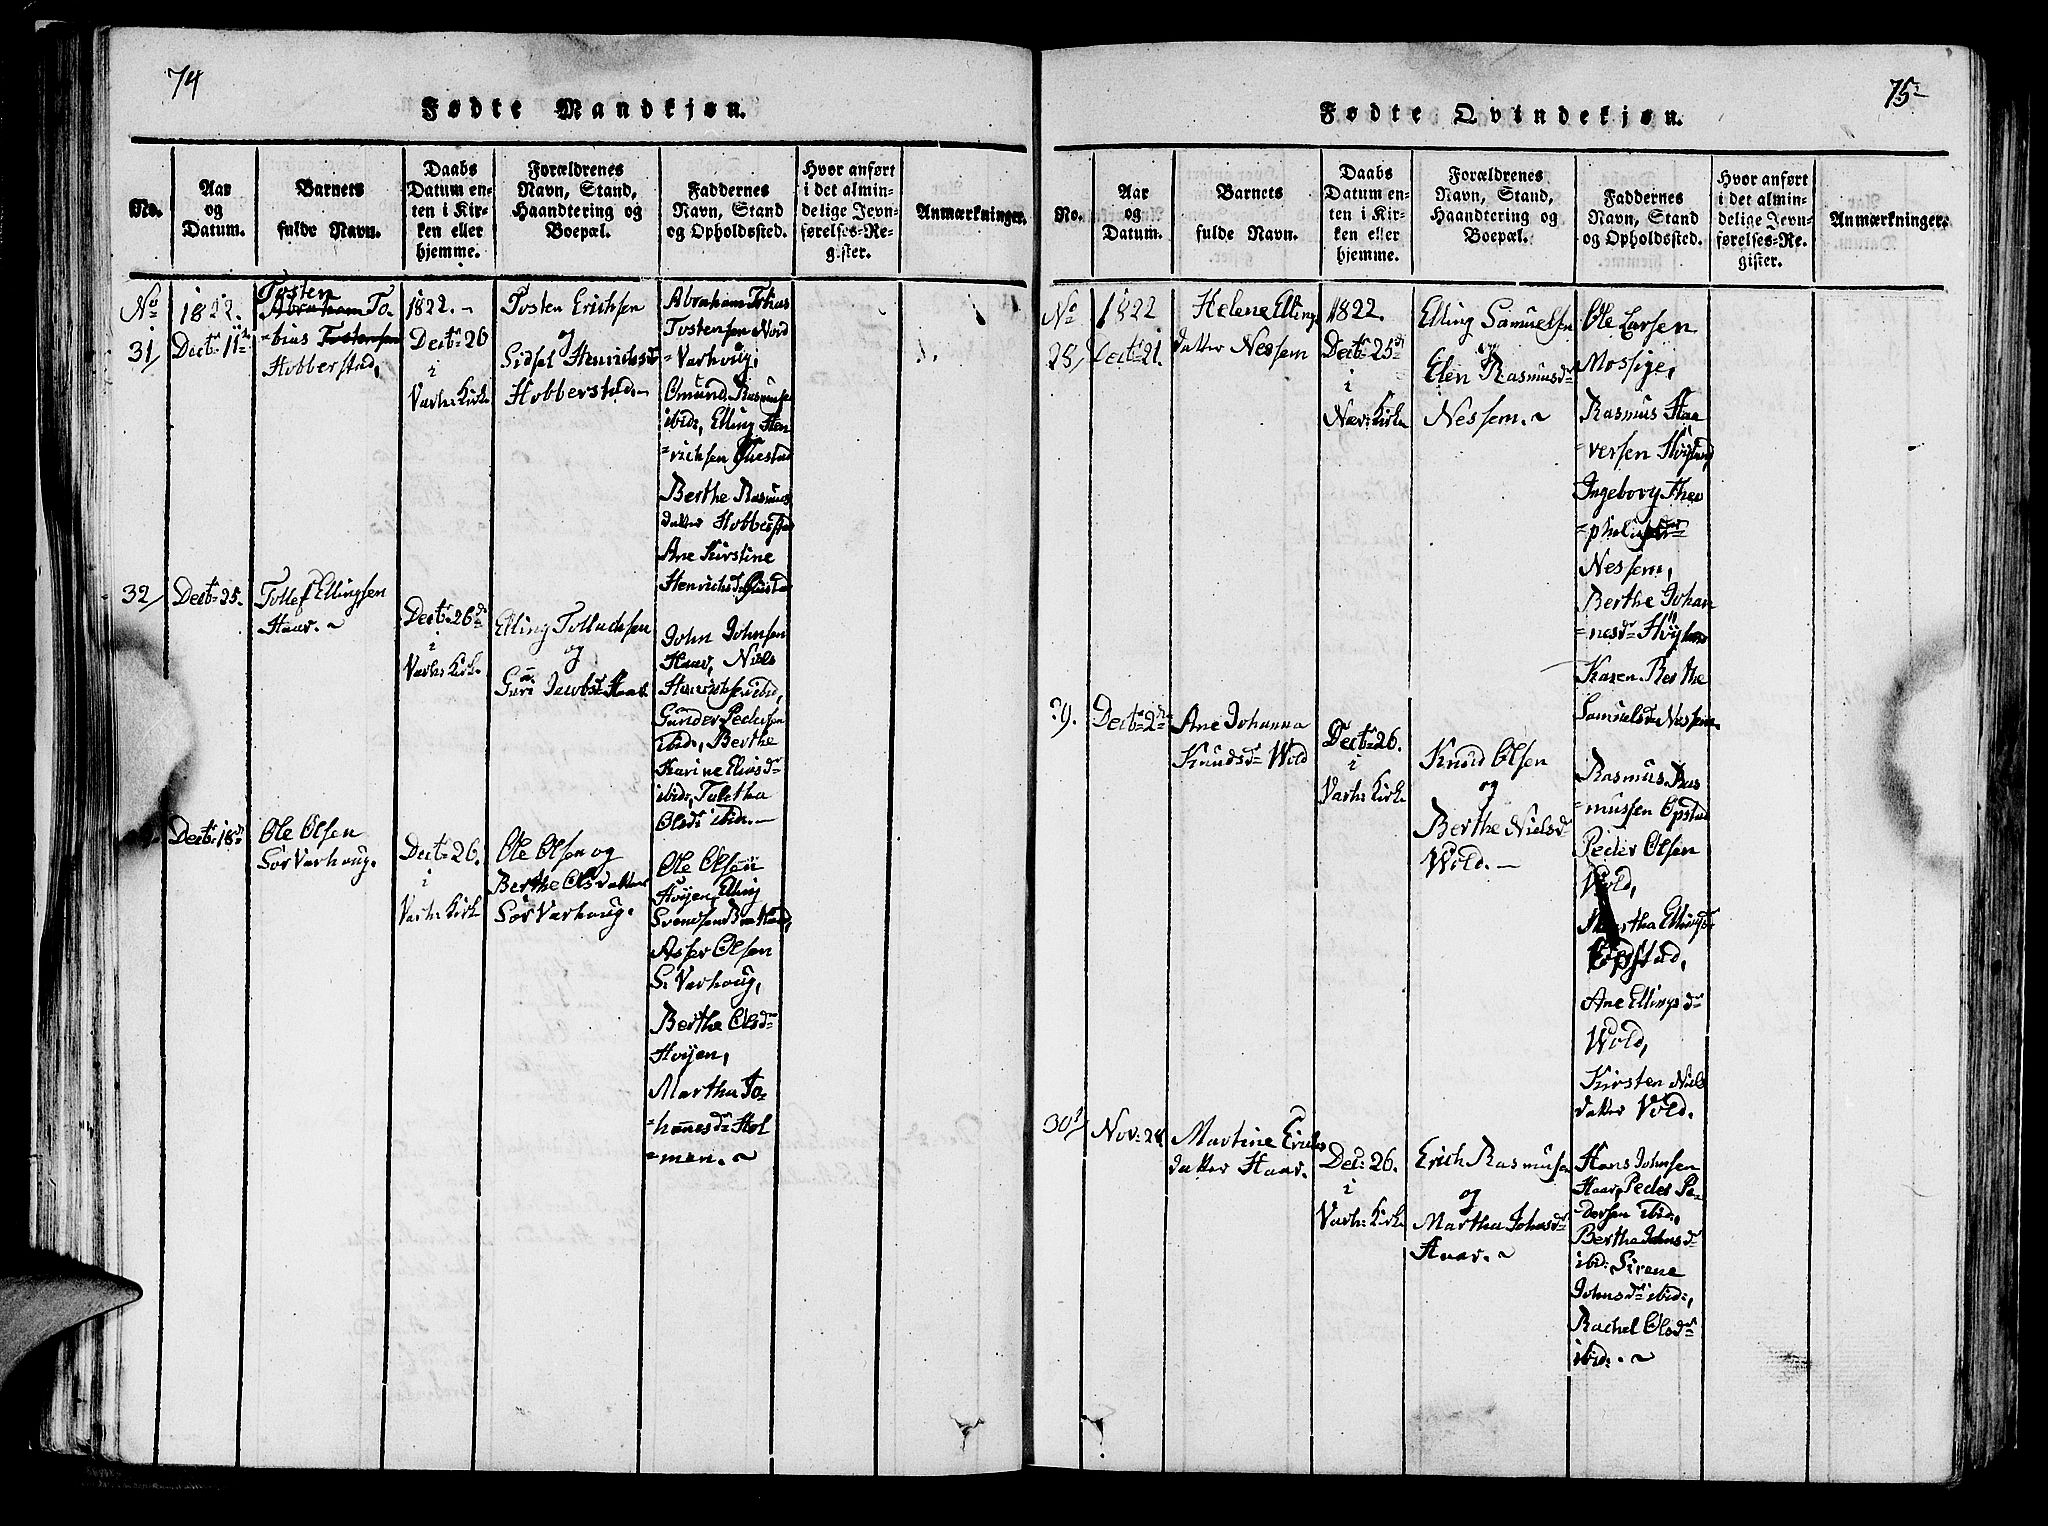 74
Fødte Mandkjøn.
No.
Aar
og
Datum.
Barnets
fulde Navn.
Daabs
Datum en-
ten i Kir-
ken eller
hjemme.
Forældrenes
Navn, Stand,
Haandtering og
Boepæl.
Faddernes
Navn, Stand
og Opholdssted.
Hvor anført
i det almin-
delige Jevn-
førelses-Re-
gister.
Anmærkninger.
No
31
1822.
Decbr 11te
Tosten
Abraham To-
=bias Tostensen
Hobberstad,
1822.-
Decbr 26
i
Varh: Kirke
Tosten Erichsen
og
Sidsel Henrichsdr
Hobberstad.-
Abraham Tobias
Tostensen Nord
Varhoug,
Omund Rasmusen
ibid:, Elling Hen
=richsen
Berthe Rasmus
datter Hobberstad
Ane Kirstine
Henrichsdr
32
Decbr 25.
Tollef Ellingsen
Haar. ~
Decbr 26de
i
Varh: Kirk.
Elling Tollachsen
og
Guri Jacobsd Haar
John Johnsen
Haar, Niels
ibid,
Gunder Pedersen
ibid:, Berthe
Karine Eliasdr
ibid:, Toletha
Olsdr ibid.-
Decbr 18de
Ole Olsen
Sør Varhoug.
Decbr 26.
i
Varh: Kirk
Ole Olsen og
Berthe Olsdatter
Sør Varhoug.
Ole Olsen
Høyen, Elling
Svendsen
Asser Olsen
S. Varhoug,
Berthe Olsdr
Høyen,
Martha Jo-
=hanesdr Hol
=men. ~
75
Fødte Qvindekjøn.
No.
Aar
og
Datum.
Barnets
fulde Navn.
Daabs
Datum en-
ten i Kir-
ken eller
hjemme.
Forældrenes
Navn, Stand,
Haandtering og
Boepæl.
Faddernes
Navn, Stand
og Opholdssted.
Hvor anført
i det almin-
delige Jevn-
førelses-Re-
gister.
Anmærkninger.
No
28
1822
Decbr 21.
Helene Ellings
datter Nessem
1822.
Decbr 25de
i
Nær: Kirke
Elling Samuelsen
og
Elen Rasmusdr
Nessem. ~
Ole Larsen
Mossige,
Rasmus Haa
=versen Høyland
Ingeborg Theo
=philusdr
Nessem,
Berthe Johan
=nesdr Høyland
Karen Berthe
Samuelsdr Nessem.
29.
Decbr 2
Ane Johanna
Knudsdr Wold
Decbr 26.
i
Varh: Kirke
Knud Olsen
og
Berthe Nielsdr
Wold. -
Rasmus Ras
=mussen Opstad
Peder Olsen
Wold,
Martha Ellingsdr
Opstad,
Ane Ellingsdr
Wold,
Kirsten Niels
datter Vold.
30
Nov: 24
Martine Erichs
datter Haar.
Dec: 26.
i
Varh: Kirke
Erich Rasmusen
og
Martha Johnsdr
Haar. ~
Hans Johnsen
Haar, Peder Pe-
dersen ibid:,
Berthe Johnsdr
ibid: Sirene
Johnsdr ibid:,
Rachel Olsdr
ibid:. ~